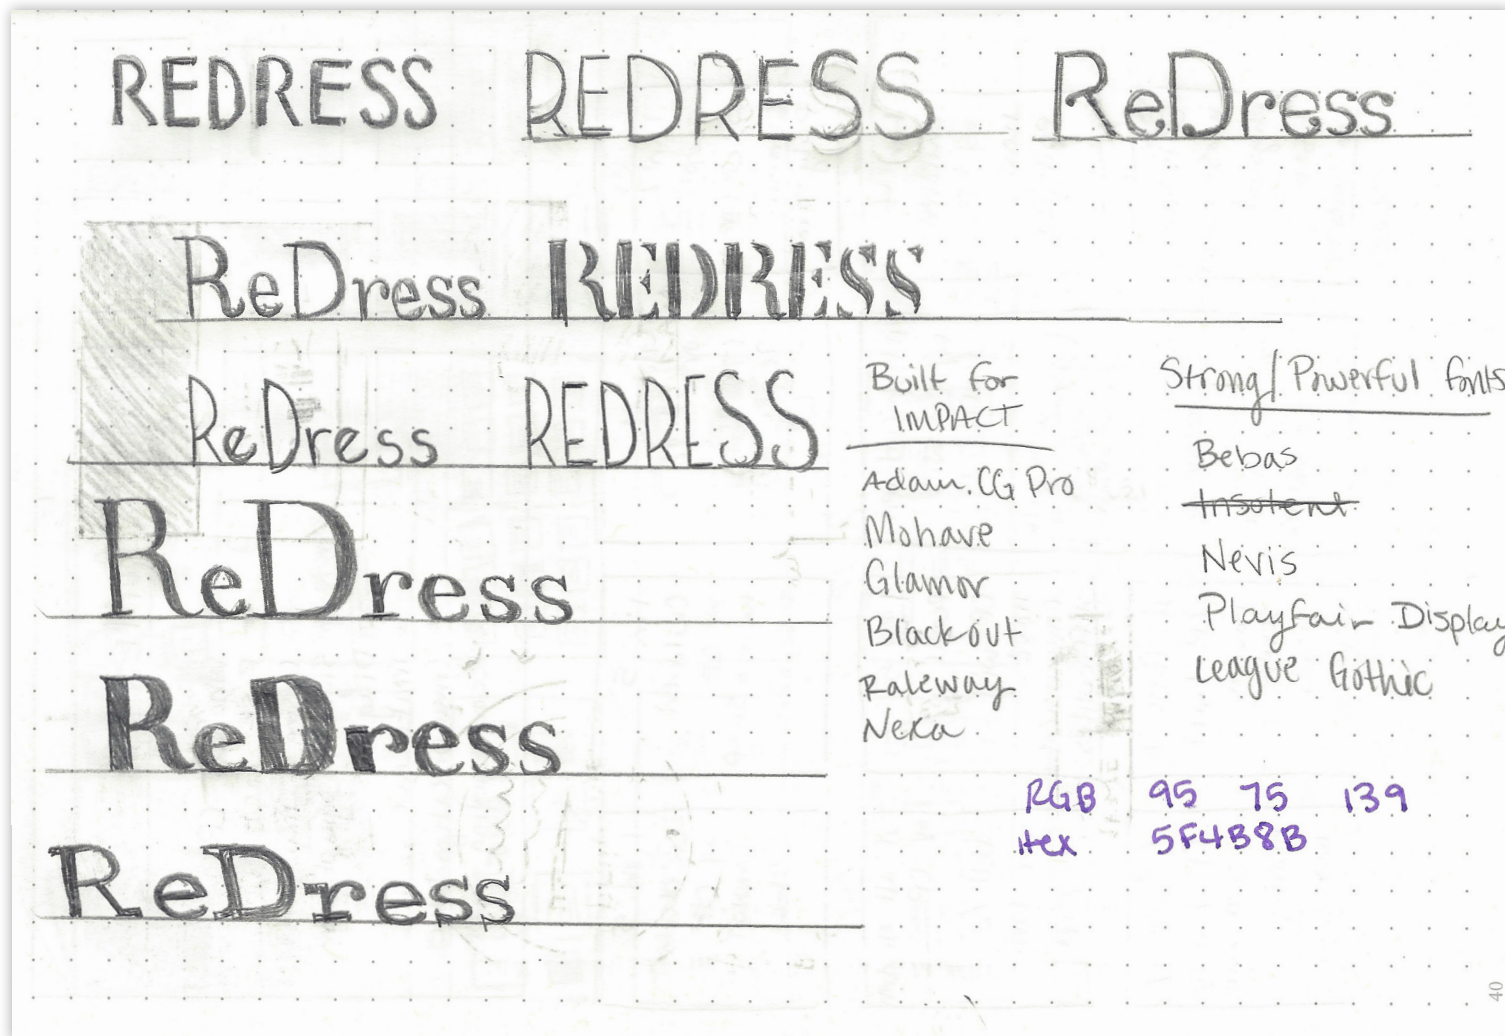 REDRESS REDRESS ReDress
ReDress REDRESS
ReDress REDRESS
ReDress
ReDress
ReDress
Built for
IMPACT
Adam.CG Pro
Mohave
Glamor
Blackout
Raleway
Nexa
Strong/Powerful fonts
Bebas
Insolent
Nevis
Playfair Display
League Gothic
RGB 95 75 139
Hex 5F4B8B
40